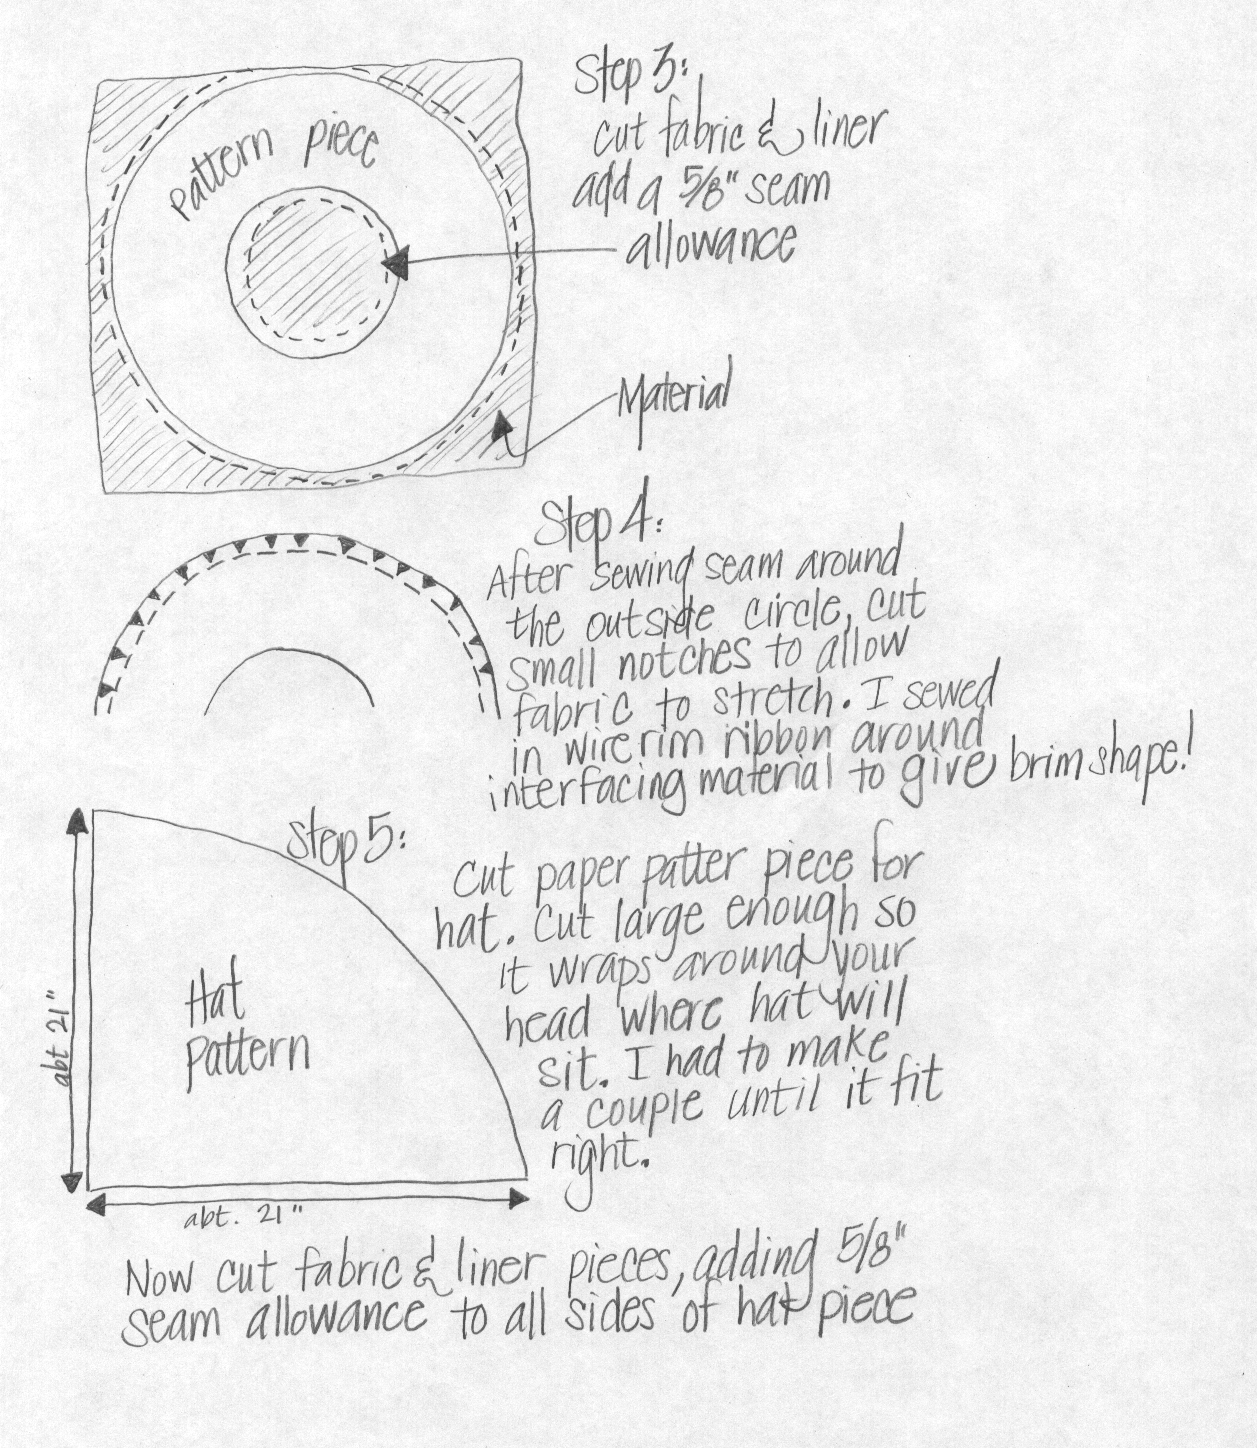 Step 3:
cut fabric & liner
add a 5/8" seam
allowance
Pattern piece
Material
Step 4:
After sewing seam around
the outside circle, cut
small notches to allow
fabric to stretch. I sewed
in wire rim ribbon around
interfacing material to give brim shape!
Step 5:
Cut paper patter piece for
hat. Cut large enough so
it wraps around your
head where hat will
sit. I had to make
a couple until it fit
right.
Hat
Pattern
abt 21"
abt. 21"
Now cut fabric & liner pieces, adding 5/8"
seam allowance to all sides of hat piece